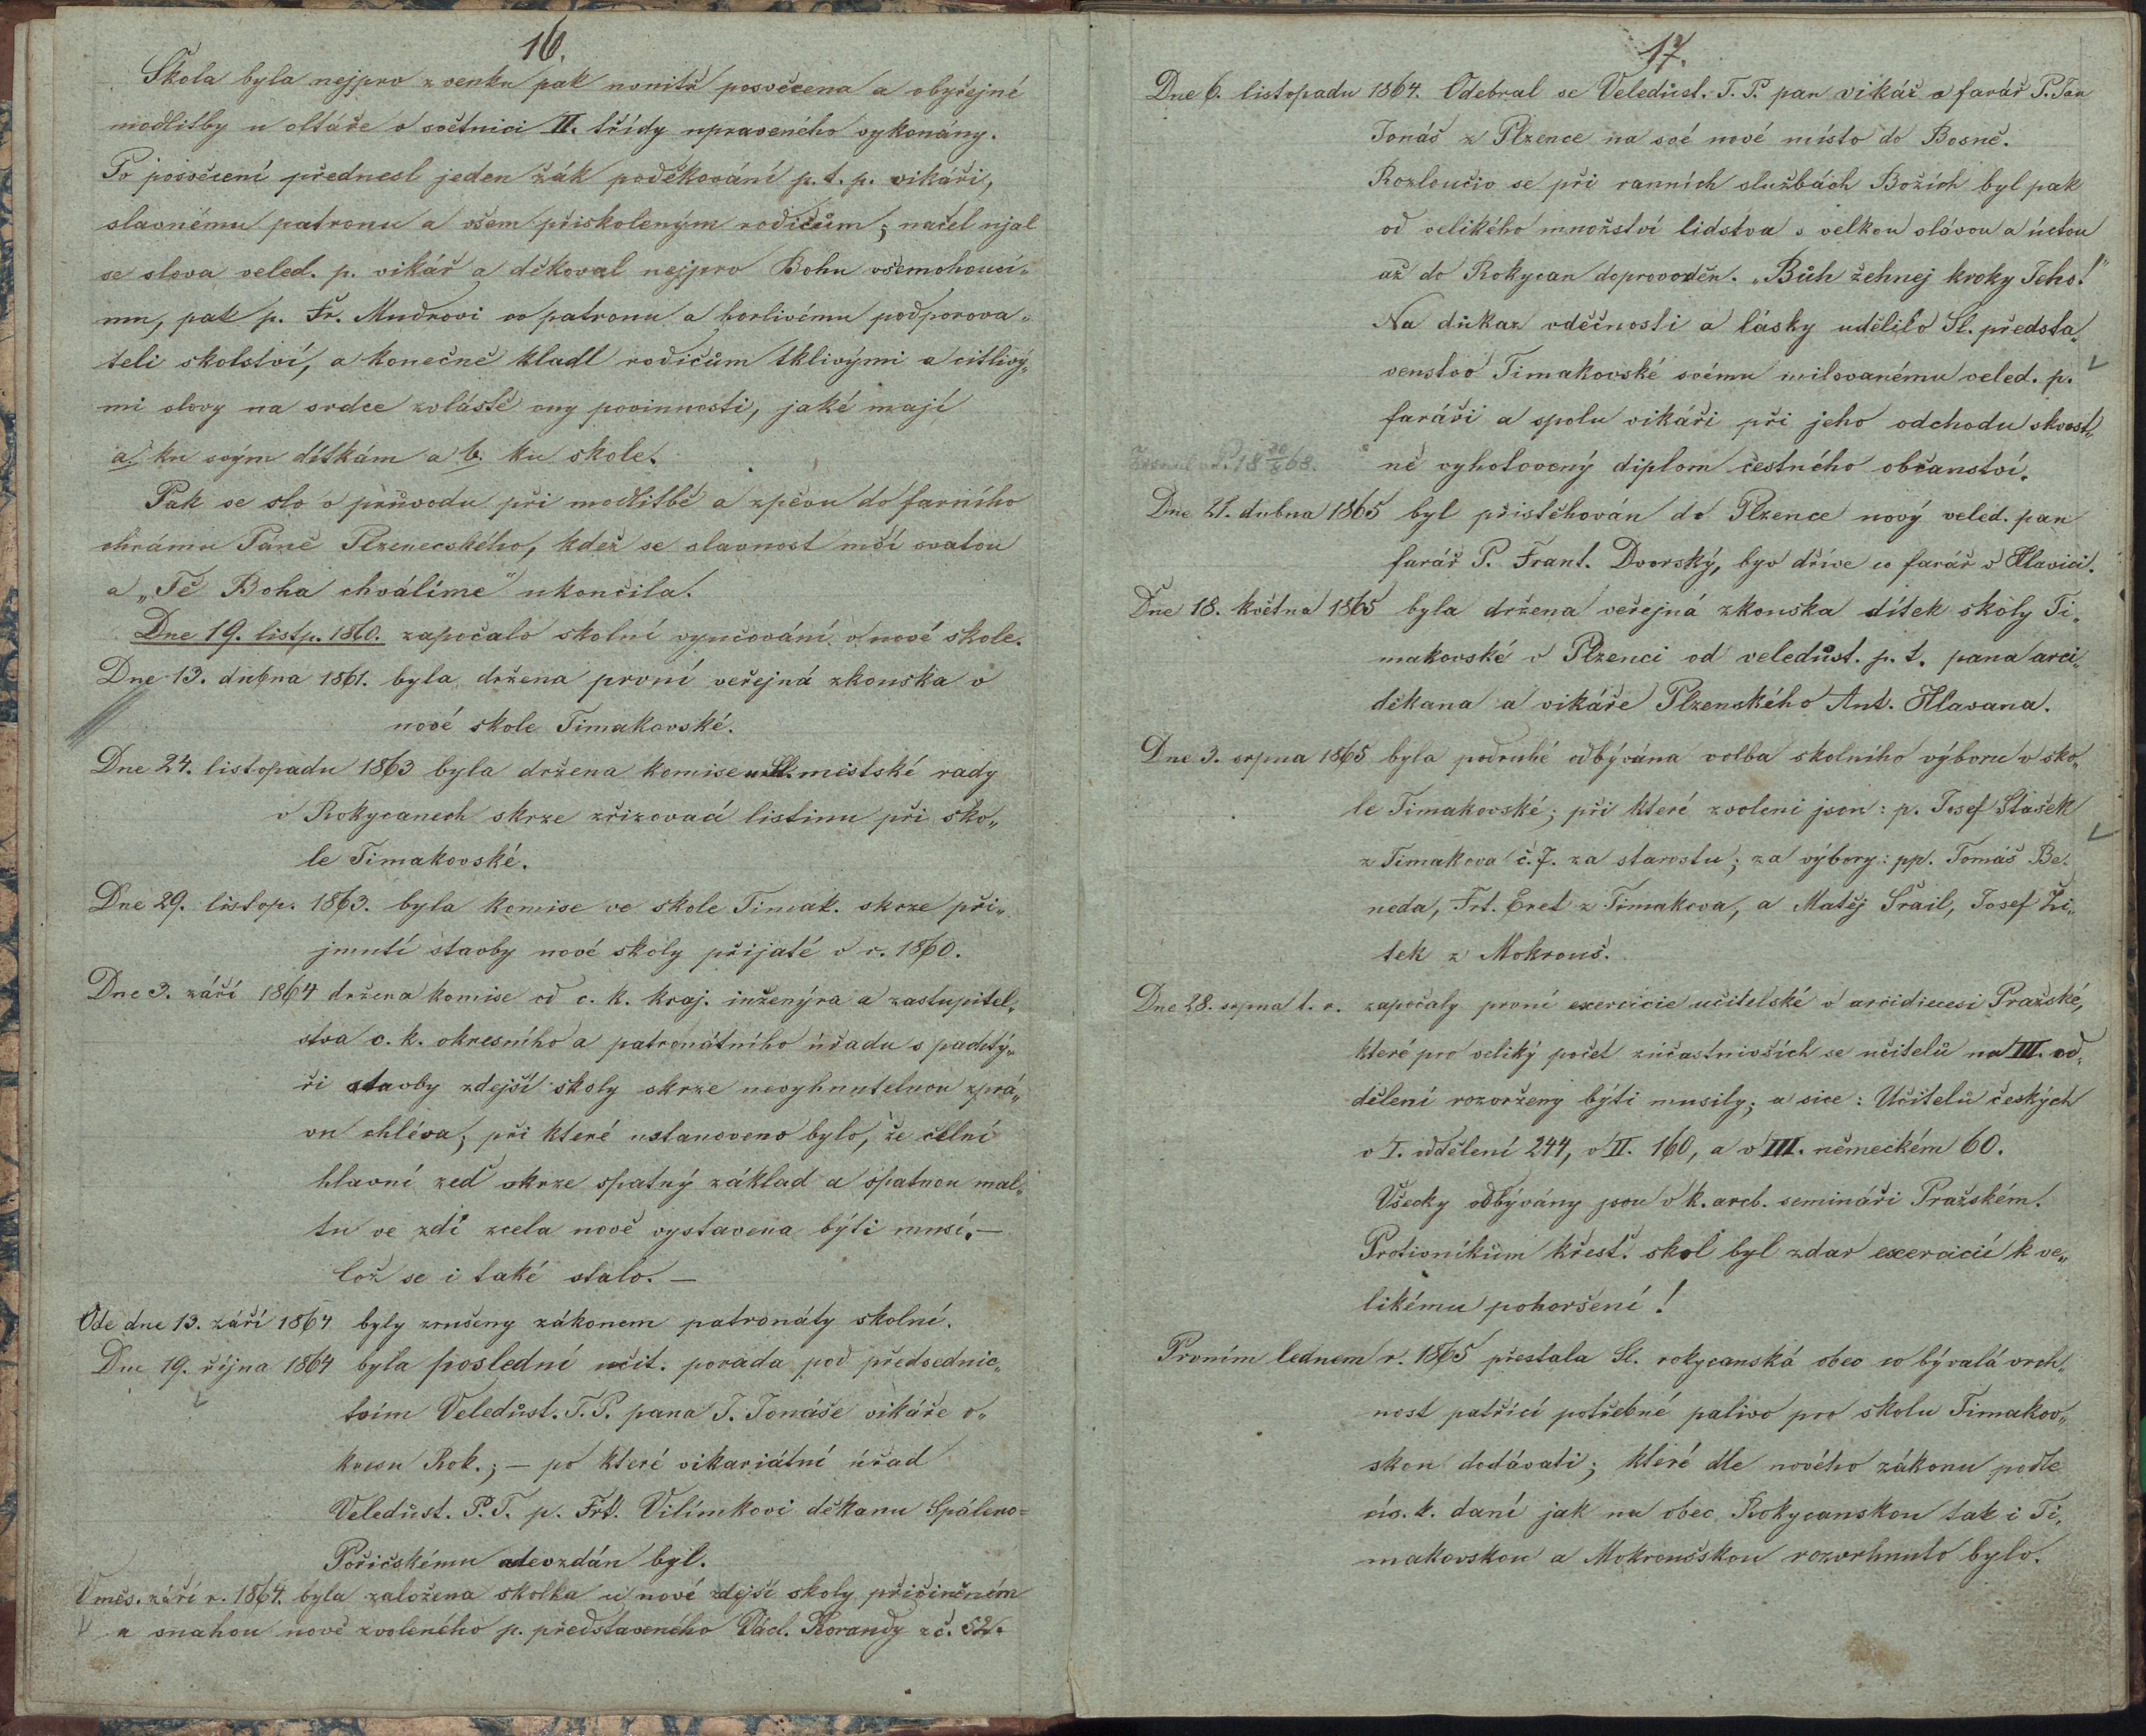 16.
Škola byla nejprv z venku pak vnnitř posvěcena a obyčejné
modlitby u oltáře v světnici II. třídy upraveného vykonány.
Po posvěcení přednesl jeden žák poděkování p. t. p. vikáři,
slavnému patronu a všem přiskoleným rodičům; načel ujal
se slova veled. p. vikář a děkoval nejprv Bohu všemohoucí„
mu, pak p. Fr. Mudrovi co patronu a horlivému podporova„
teli skolství, a konečně kladl rodičům tklivými a citlivý„
mi slovy na srdce zvláště ony povinnosti, jaké mají
a. ku svým dítkám a b. ku skole.
Pak se slo v průvodu při modlitbě a zpěvu do farního
chrámu Páně Plzenecského, kdež se slavnost mší svatou
a „Tě Boha chválíme" ukončila.
Dne 19. listp. 1860. započalo skolní vyučování v nové skole.
Dne 13. dubna 1861. byla držena první veřejná zkouska v
nové skole Timakovské.
Dne 24. listopadu 1863 byla držena komise u Sl. mistské rady
v Rokycanech skrze zřizovací listinu při sko„
le Timakovské.
Dne 29. listop. 1863. byla komise ve skole Timak. skrze při„
jmutí stavby nové skoly přijaté v r. 1860.
Dne 3. září 1864 držena komise od c. k. kraj. inženýra a zastupitel„
stva c. k. okresního a patronátního úřadu s pachtý„
ři stavby zdejší skoly skrze nevyhnutelnou zprá„
vu chléva; při které ustanoveno bylo, že čelní
hlavní zeď skrze spatný základ a spatnou mal„
tu ve zdi zcela nově vystavena býti musí. —
Což se i také stalo. —
Ode dne 13. září 1864 byly zrušeny zákonem patronáty skolní.
Dne 19. října 1864 byla poslední učit. porada pod předsednic„
tvím Veledůst. T. P. pana J. Jonáše vikáře o„
kresu Rok.; — po které vikariátní úřad
Veledůst. P. T. p. Frt. Vilímkovi děkanu Spáleno=
Pořičskému odevzdán byl.
V měs. září r. 1864. byla založena skolka u nové zdejší skoly přičiněním
a snahou nově zvoleného p. představeného Václ. Korandy z č. 52.
17.
Dne 6. listopadu 1864. Odebral se Veledůst. T. P. pan vikář a farář P. Jan
Jonáš z Plzence na své nové místo do Bosně.
Rozloučiv se při ranních službách Božích byl pak
od velikého množství lidstva s velkou slávou a úctou
až do Rokycan doprovoděn. „Bůh žehnej kroky Jeho!"
Na důkaz vděčnosti a lásky udělilo Sl. předsta„
venstvo Timakovské svému milovanému veled. p.
faráři a spolu vikáři při jeho odchodu skvost„
ně vyhotovený diplom čestného občanství.
Dne 21. dubna 1865 byl přistěhován do Plzence nový veled. pan
farář P. Frant. Dvorský, byv dříve co farář v Hlavici.
Dne 18. května 1865 byla držena veřejná zkouska dítek skoly Ti„
makovské v Plzenci od veledůst. p. t. pana arci„
děkana a vikáře Plzenského Ant. Hlavana.
Dne 3. srpna 1865 byla podruhé odbývána volba skolního výboru v sko„
le Timakovské; při které zvoleni jsou: p. Josef Stašek
z Timakova č. 7. za starostu; za výbory: pp. Tomáš Be„
neda, Frt. Eret z Timakova, a Matěj Šrail, Josef Ži„
tek z Mokrouš.
Dne 28. srpna t. r. započaly první exercicie učitelské v arcidiecesi Pražské,
které pro veliký počet zúčastnivších se učitelů na III. od„
dělení rozvrženy býti musily; a sice: Učitelů českých
v I. oddělení 244, v II. 160, a v III. německém 60.
Všecky odbývány jsou v k. arcb. semináři Pražském.
Protivníkům křesť. skol byl zdar exercicií k ve„
likému pohoršení!
Prvním lednem r. 1865 přestala Sl. rokycanská obec co bývalá vrch„
nost patřící potřebné palivo pro skolu Timakov„
skou dodávati; které dle nového zákonu podle
cís. k. daní jak na obec Rokycanskou tak i Ti„
makovskou a Mokroušskou rozvrhnuto bylo.